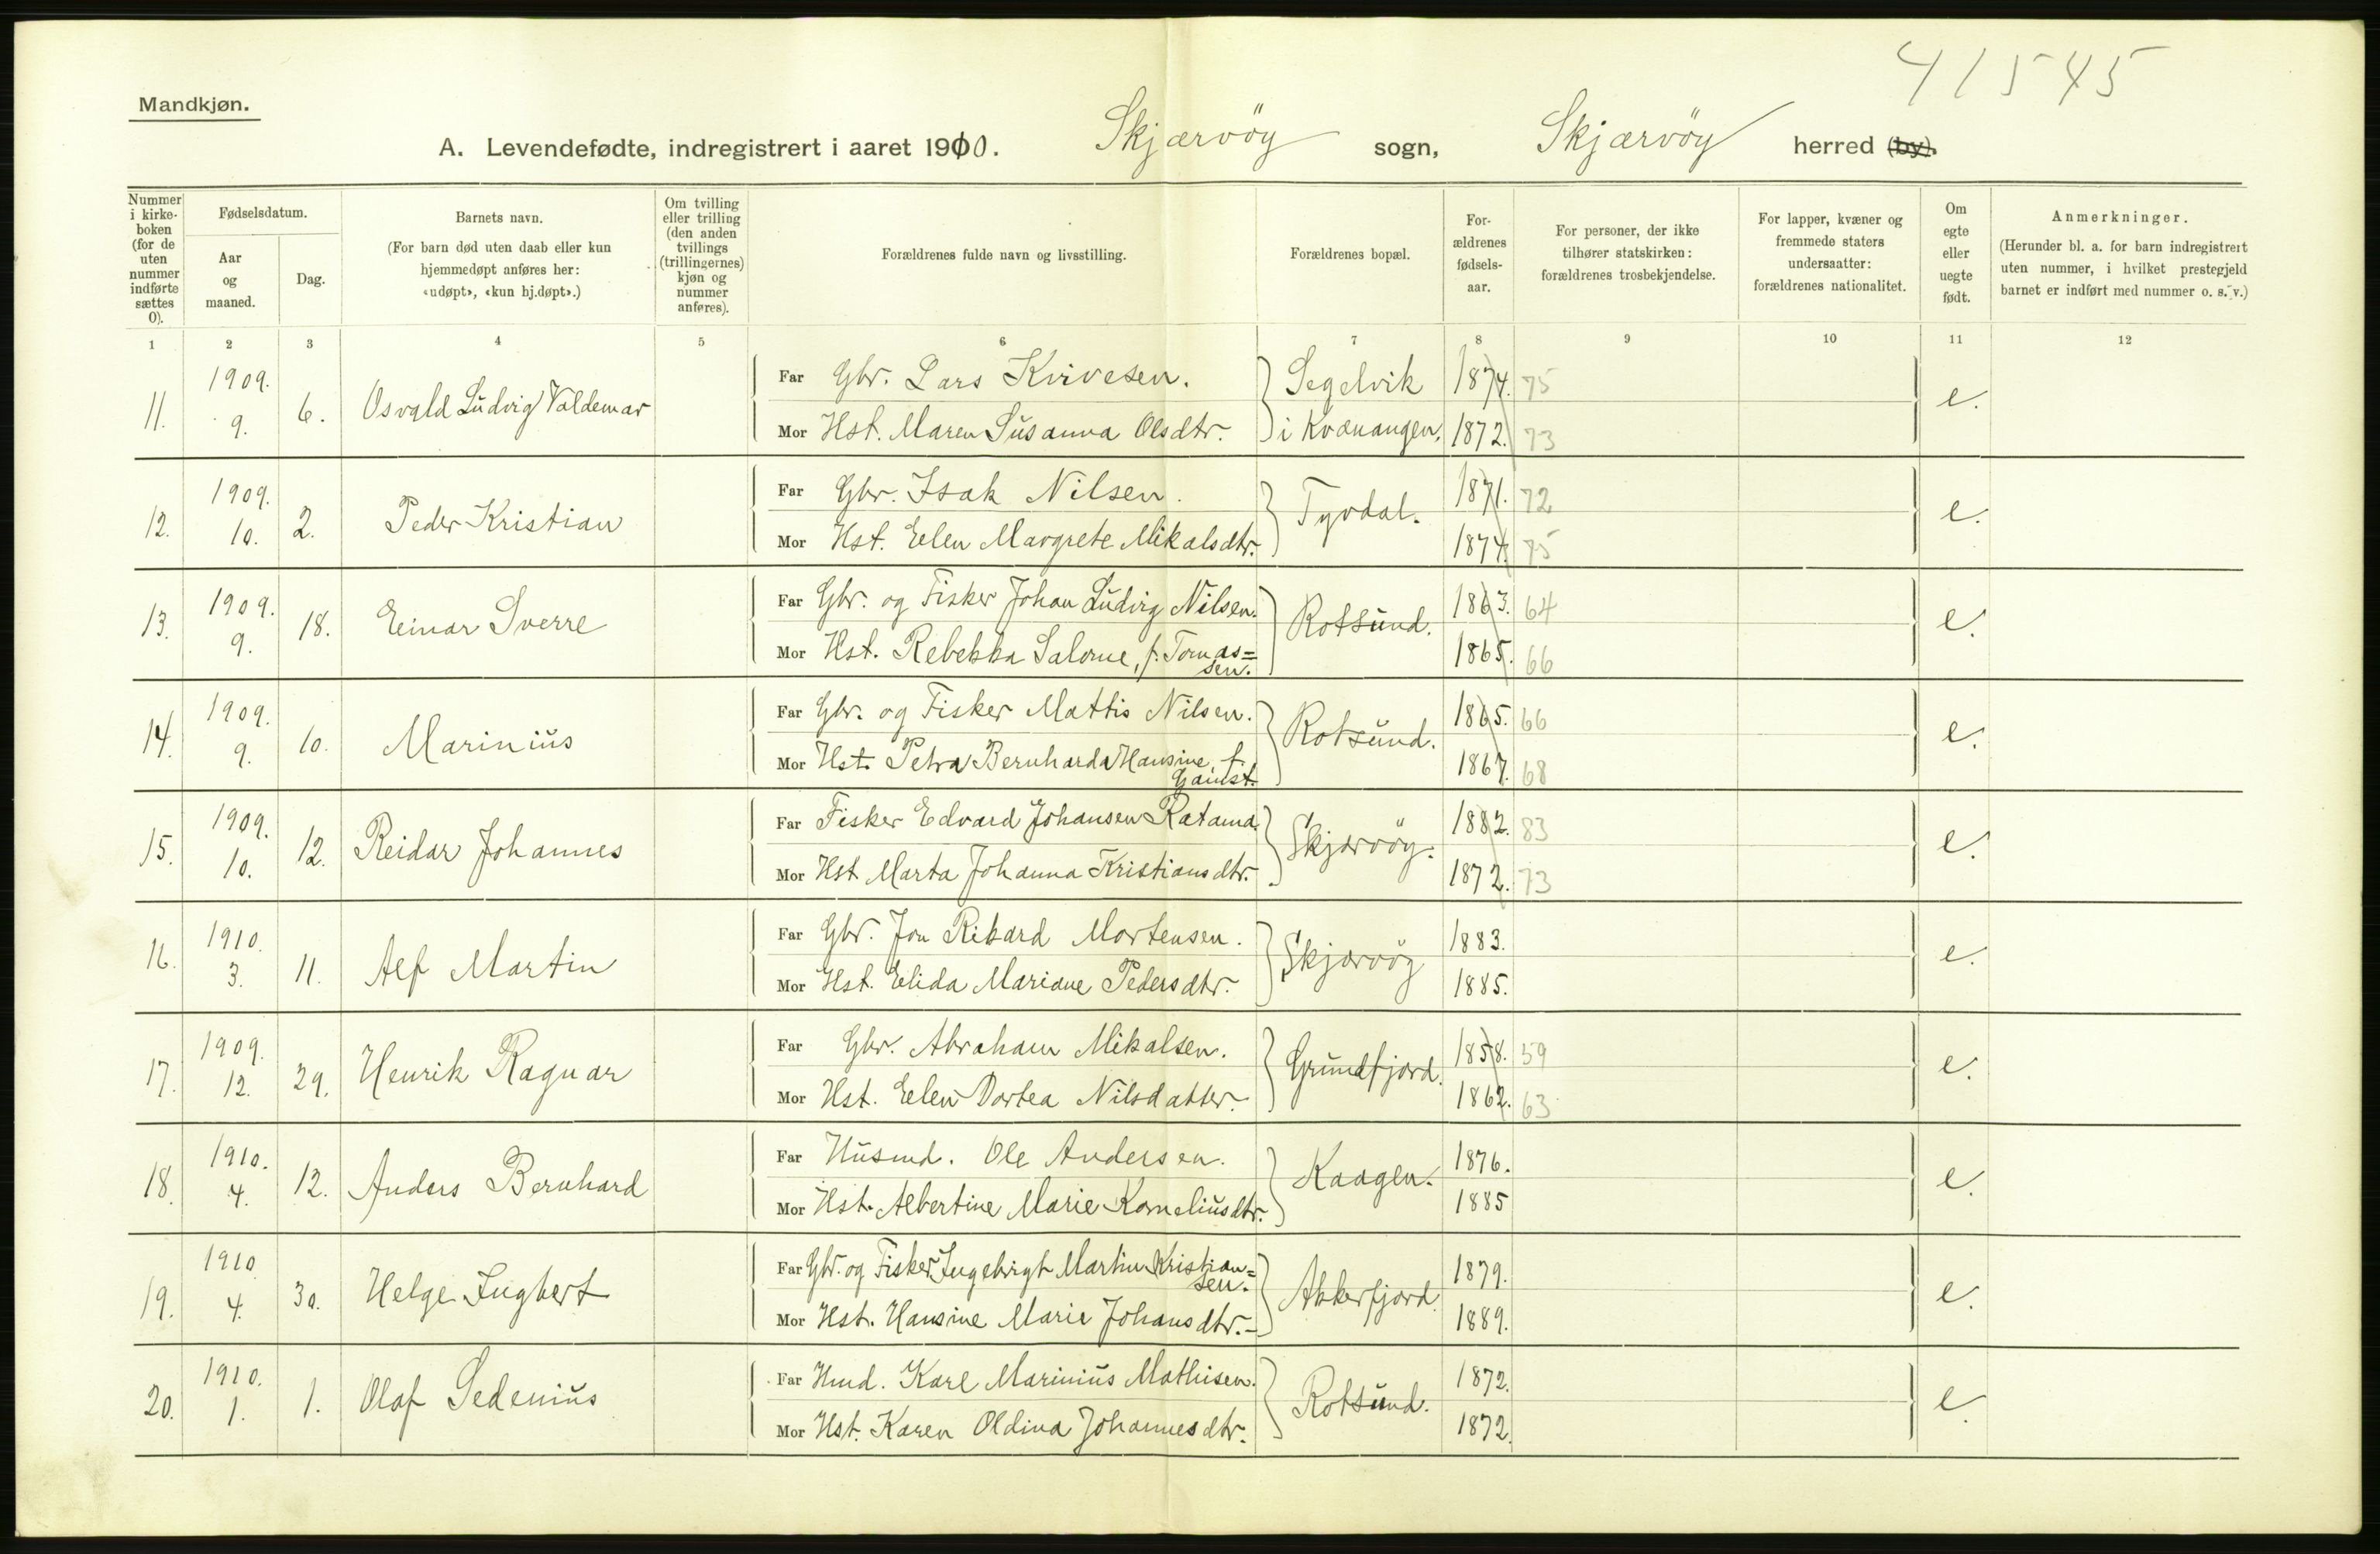 41545
Mandkjøn.
A. Levendefødte, indregistrert i aaret 1910. Skjærvöy sogn, Skjærvöy herred (by).
Nummer i kirke-boken (for de uten nummer indførte sættes 0).
Fødselsdatum.
Aar og maaned.
Dag.
Barnets navn.
(For barn død uten daab eller kun hjemmedøpt anføres her: «udøpt», «kun hj.døpt».)
Om tvilling eller trilling (den anden tvillings (trillingernes) kjøn og nummer anføres).
Forældrenes fulde navn og livsstilling.
Forældrenes bopæl.
For-ældrenes fødsels-aar.
For personer, der ikke tilhører statskirken: forældrenes trosbekjendelse.
For lapper, kvæner og fremmede staters undersaatter: forældrenes nationalitet.
Om egte eller uegte født.
Anmerkninger.
(Herunder bl. a. for barn indregistrert uten nummer, i hvilket prestegjeld barnet er indført med nummer o. s. v.)
1 2 3 4 5 6 7 8 9 10 11 12
11. 1909. 9. 6. Osvald Ludvig Valdemar
Far Gbr. Lars Kvivesen. Segelvik 1874. 75
Mor Hst. Maren Susanna Olsdtr. i Kvænangen. 1872. 73 e.
12. 1909. 10. 2. Peder Kristian
Far Gbr. Isak Nilsen. Tyvdal. 1871. 72
Mor Hst. Elen Margrete Mikalsdtr. 1874. 75 e.
13. 1909. 9. 18. Einar Sverre
Far Gbr. og Fisker Johan Ludvig Nilsen. Rotsund. 1863. 64
Mor Hst. Rebekka Salome, f. Tomas=
sen. 1865. 66 e.
14. 1909. 9. 10. Marinius
Far Gbr. og Fisker Mattis Nilsen. Rotsund. 1865. 66
Mor Hst. Petra Bernharda Hansine, f.
Gamst. 1867. 68 e.
15. 1909. 10. 12. Reidar Johannes
Far Fisker Edvard Johansen Ratama. Skjærvöy. 1882. 83
Mor Hst Marta Johanna Kristiansdtr. 1872. 73 e.
16. 1910. 3. 11. Alf Martin
Far Gbr. Jon Rikard Mortensen. Skjærvöy 1883.
Mor Hst. Elida Mariane Pedersdtr. 1885. e.
17. 1909. 12. 29. Henrik Ragnar
Far Gbr. Abraham Mikalsen. Grundfjord. 1858. 59
Mor Hst. Elen Dortea Nilsdatter. 1862. 63 e.
18. 1910. 4. 12. Anders Bernhard
Far Husmd. Ole Andersen. Kaagen. 1876.
Mor Hst. Albertine Marie Korneliusdtr. 1885 e.
19. 1910 4. 30. Helge Ingbert
Far Gbr. og Fisker Ingebrigt Martin Kristian=
sen. Akkerfjord. 1879.
Mor Hst. Hansine Marie Johansdtr. 1889. e.
20. 1910. 1. 1. Olaf Sedenius
Far Hmd. Karl Marinius Mathisen. Rotsund. 1872.
Mor Hst. Karen Oldina Johannesdtr. 1872. e.